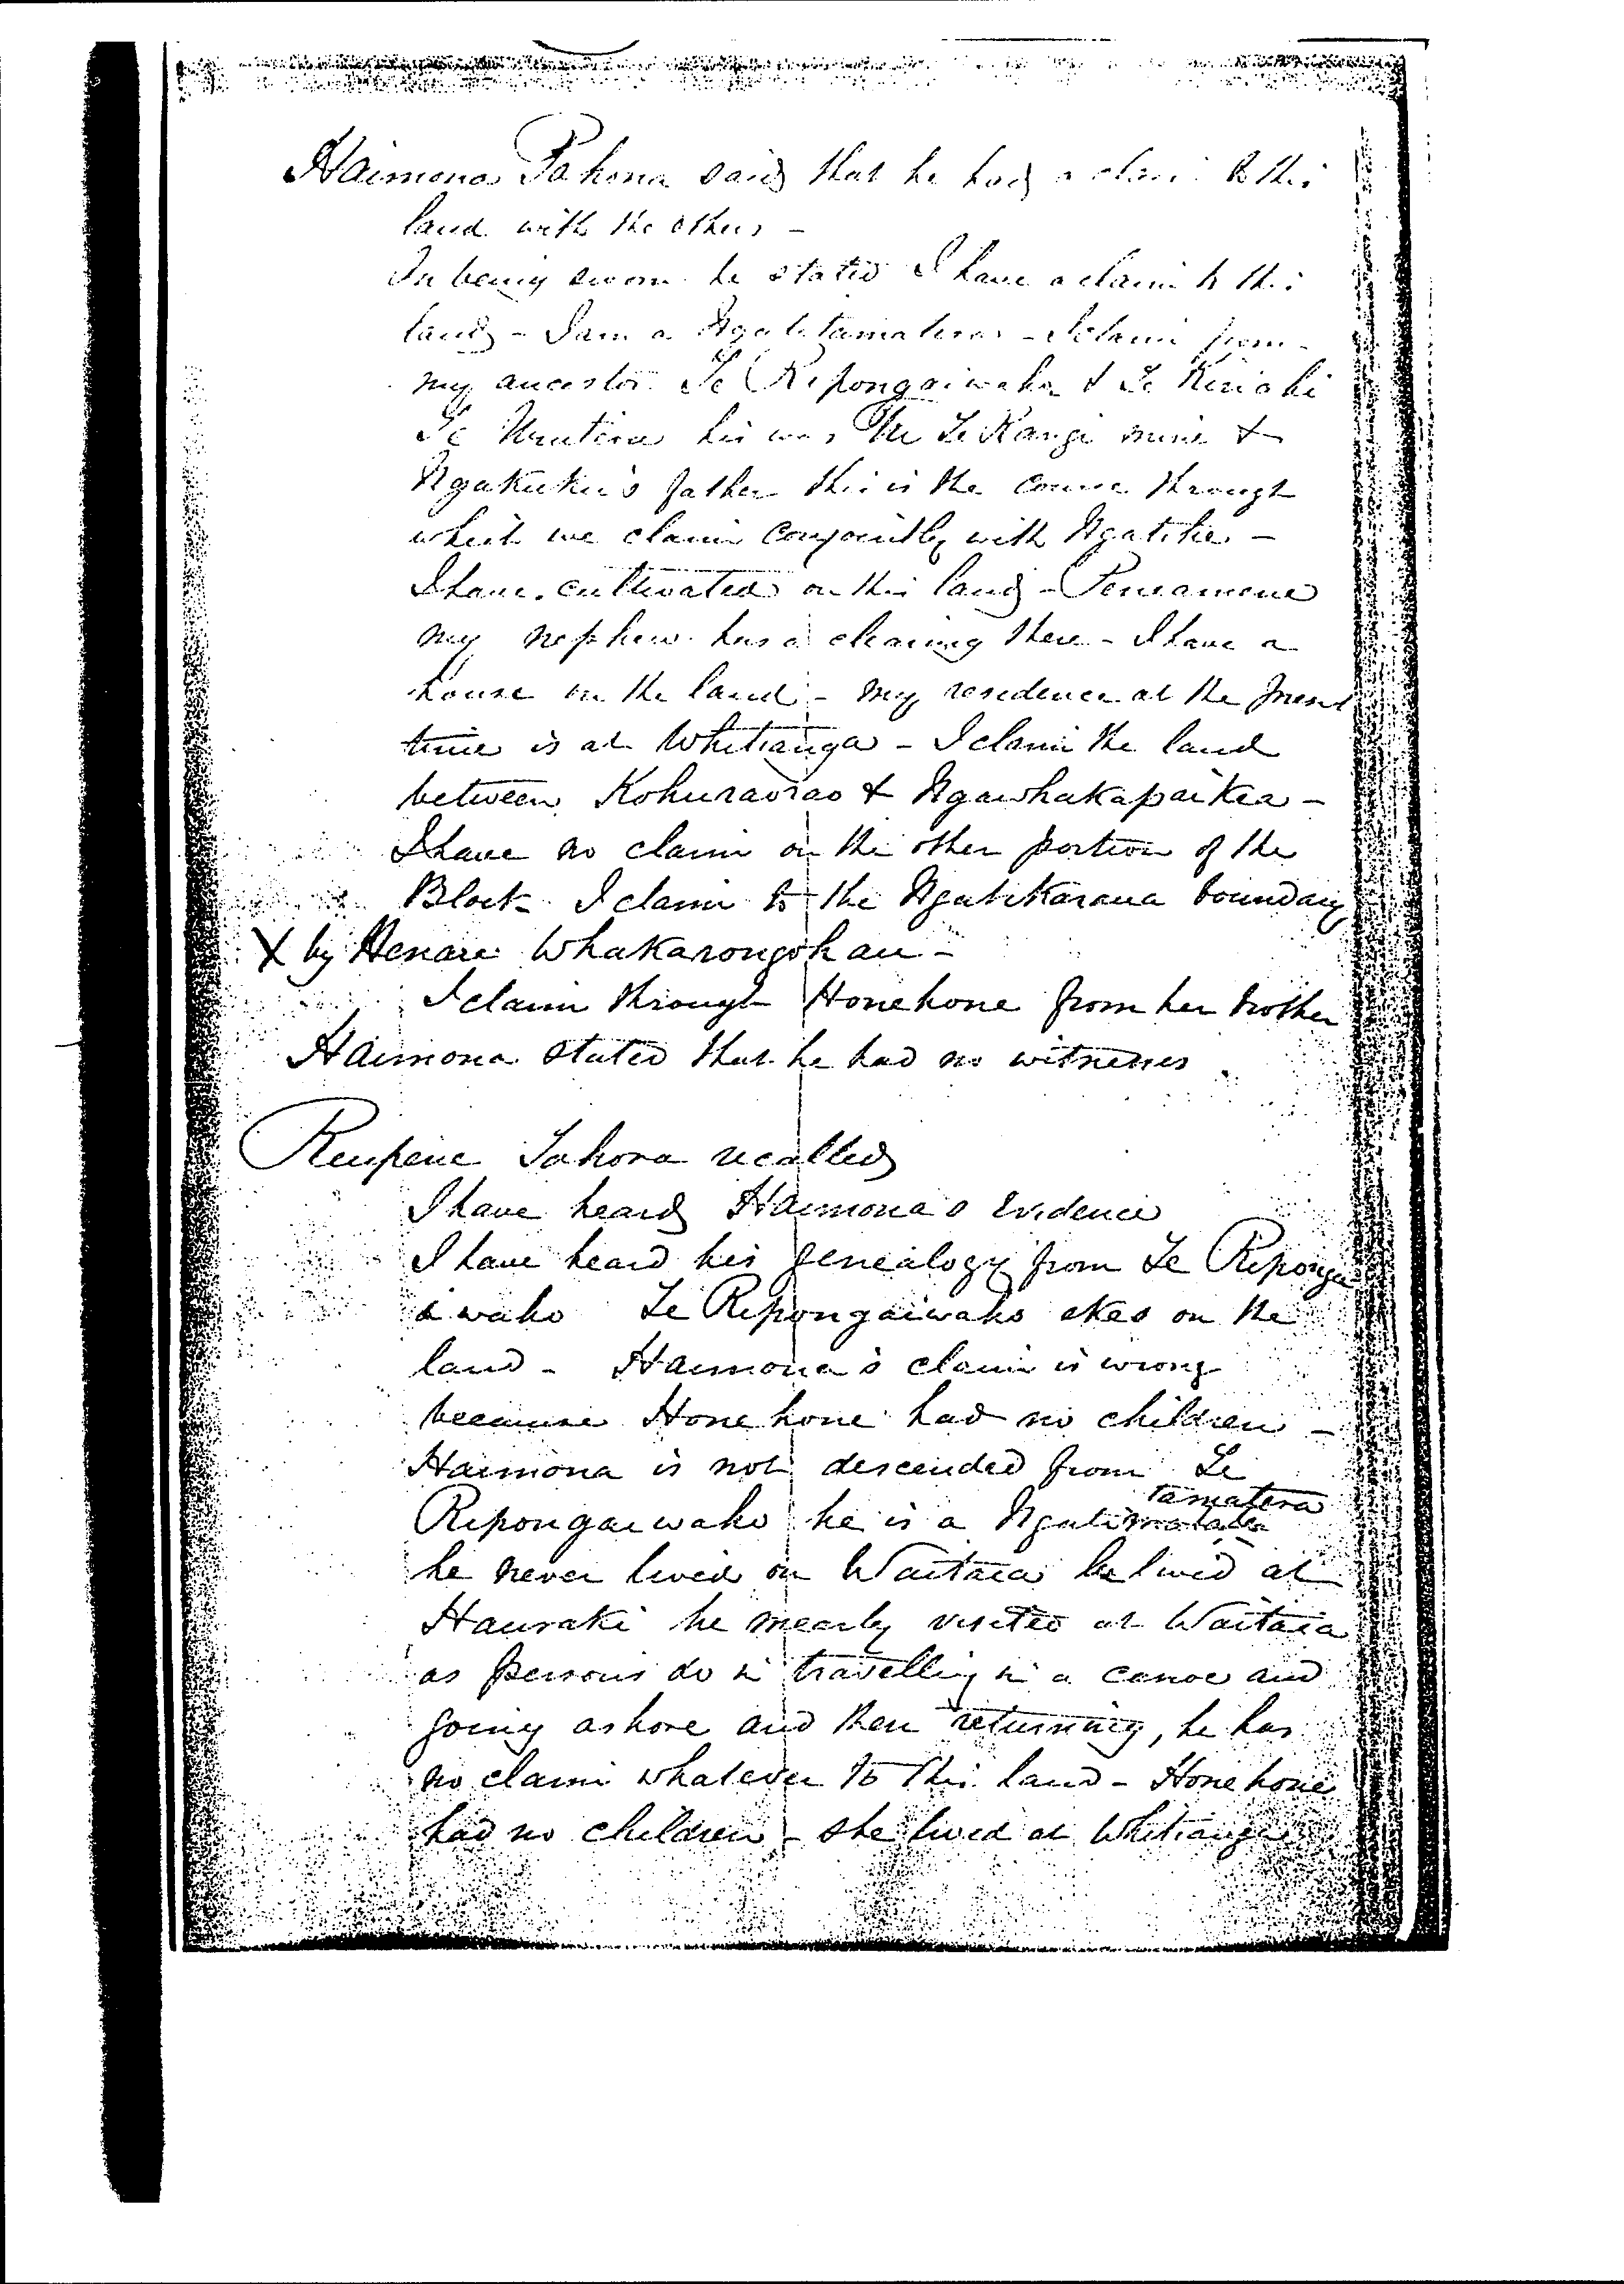 Haimona Pahona said that he had a claim to this
land with the others -
On being sworn he stated I have a claim to this
land - I am a Ngatitamatera - I claim from
my ancestor Te Ripongaiwaho & Te
Te his was Te Rangi mine &
Ngakuku's father this is the course through
which we claim conjointly with -
I have cultivated on this land -
my nephew has a clearing there - I have a
house on the land - my residence at the present
time is at Whitianga - I claim the land
between Kohuraorao & Ngawhakapaikea -
I have no claim on the other portion of the
Block - I claim to the Ngatikaraua boundary
X by Henare Whakarongohau -
I claim through Honehone from her brother
Haimona stated that he had no witnesses
Reupene Tahora recalled
I have heard Haimona's evidence
I have heard his genealogy from Te Riponga
iwaho Te Ripongaiwaho on the
land - Haimona's claim is wrong
because Honehone had no children -
Haimona is not descended from Te
Ripongaiwaho he is a Ngati tamatera
he never lived on Waitaia he lived at
Hauraki he mearly visited at Waitaia
as persons do in travelling in a canoe and
going ashore and then returning, he has
no claim whatever to this land - Honehone
had no children - she lived at Whitianga